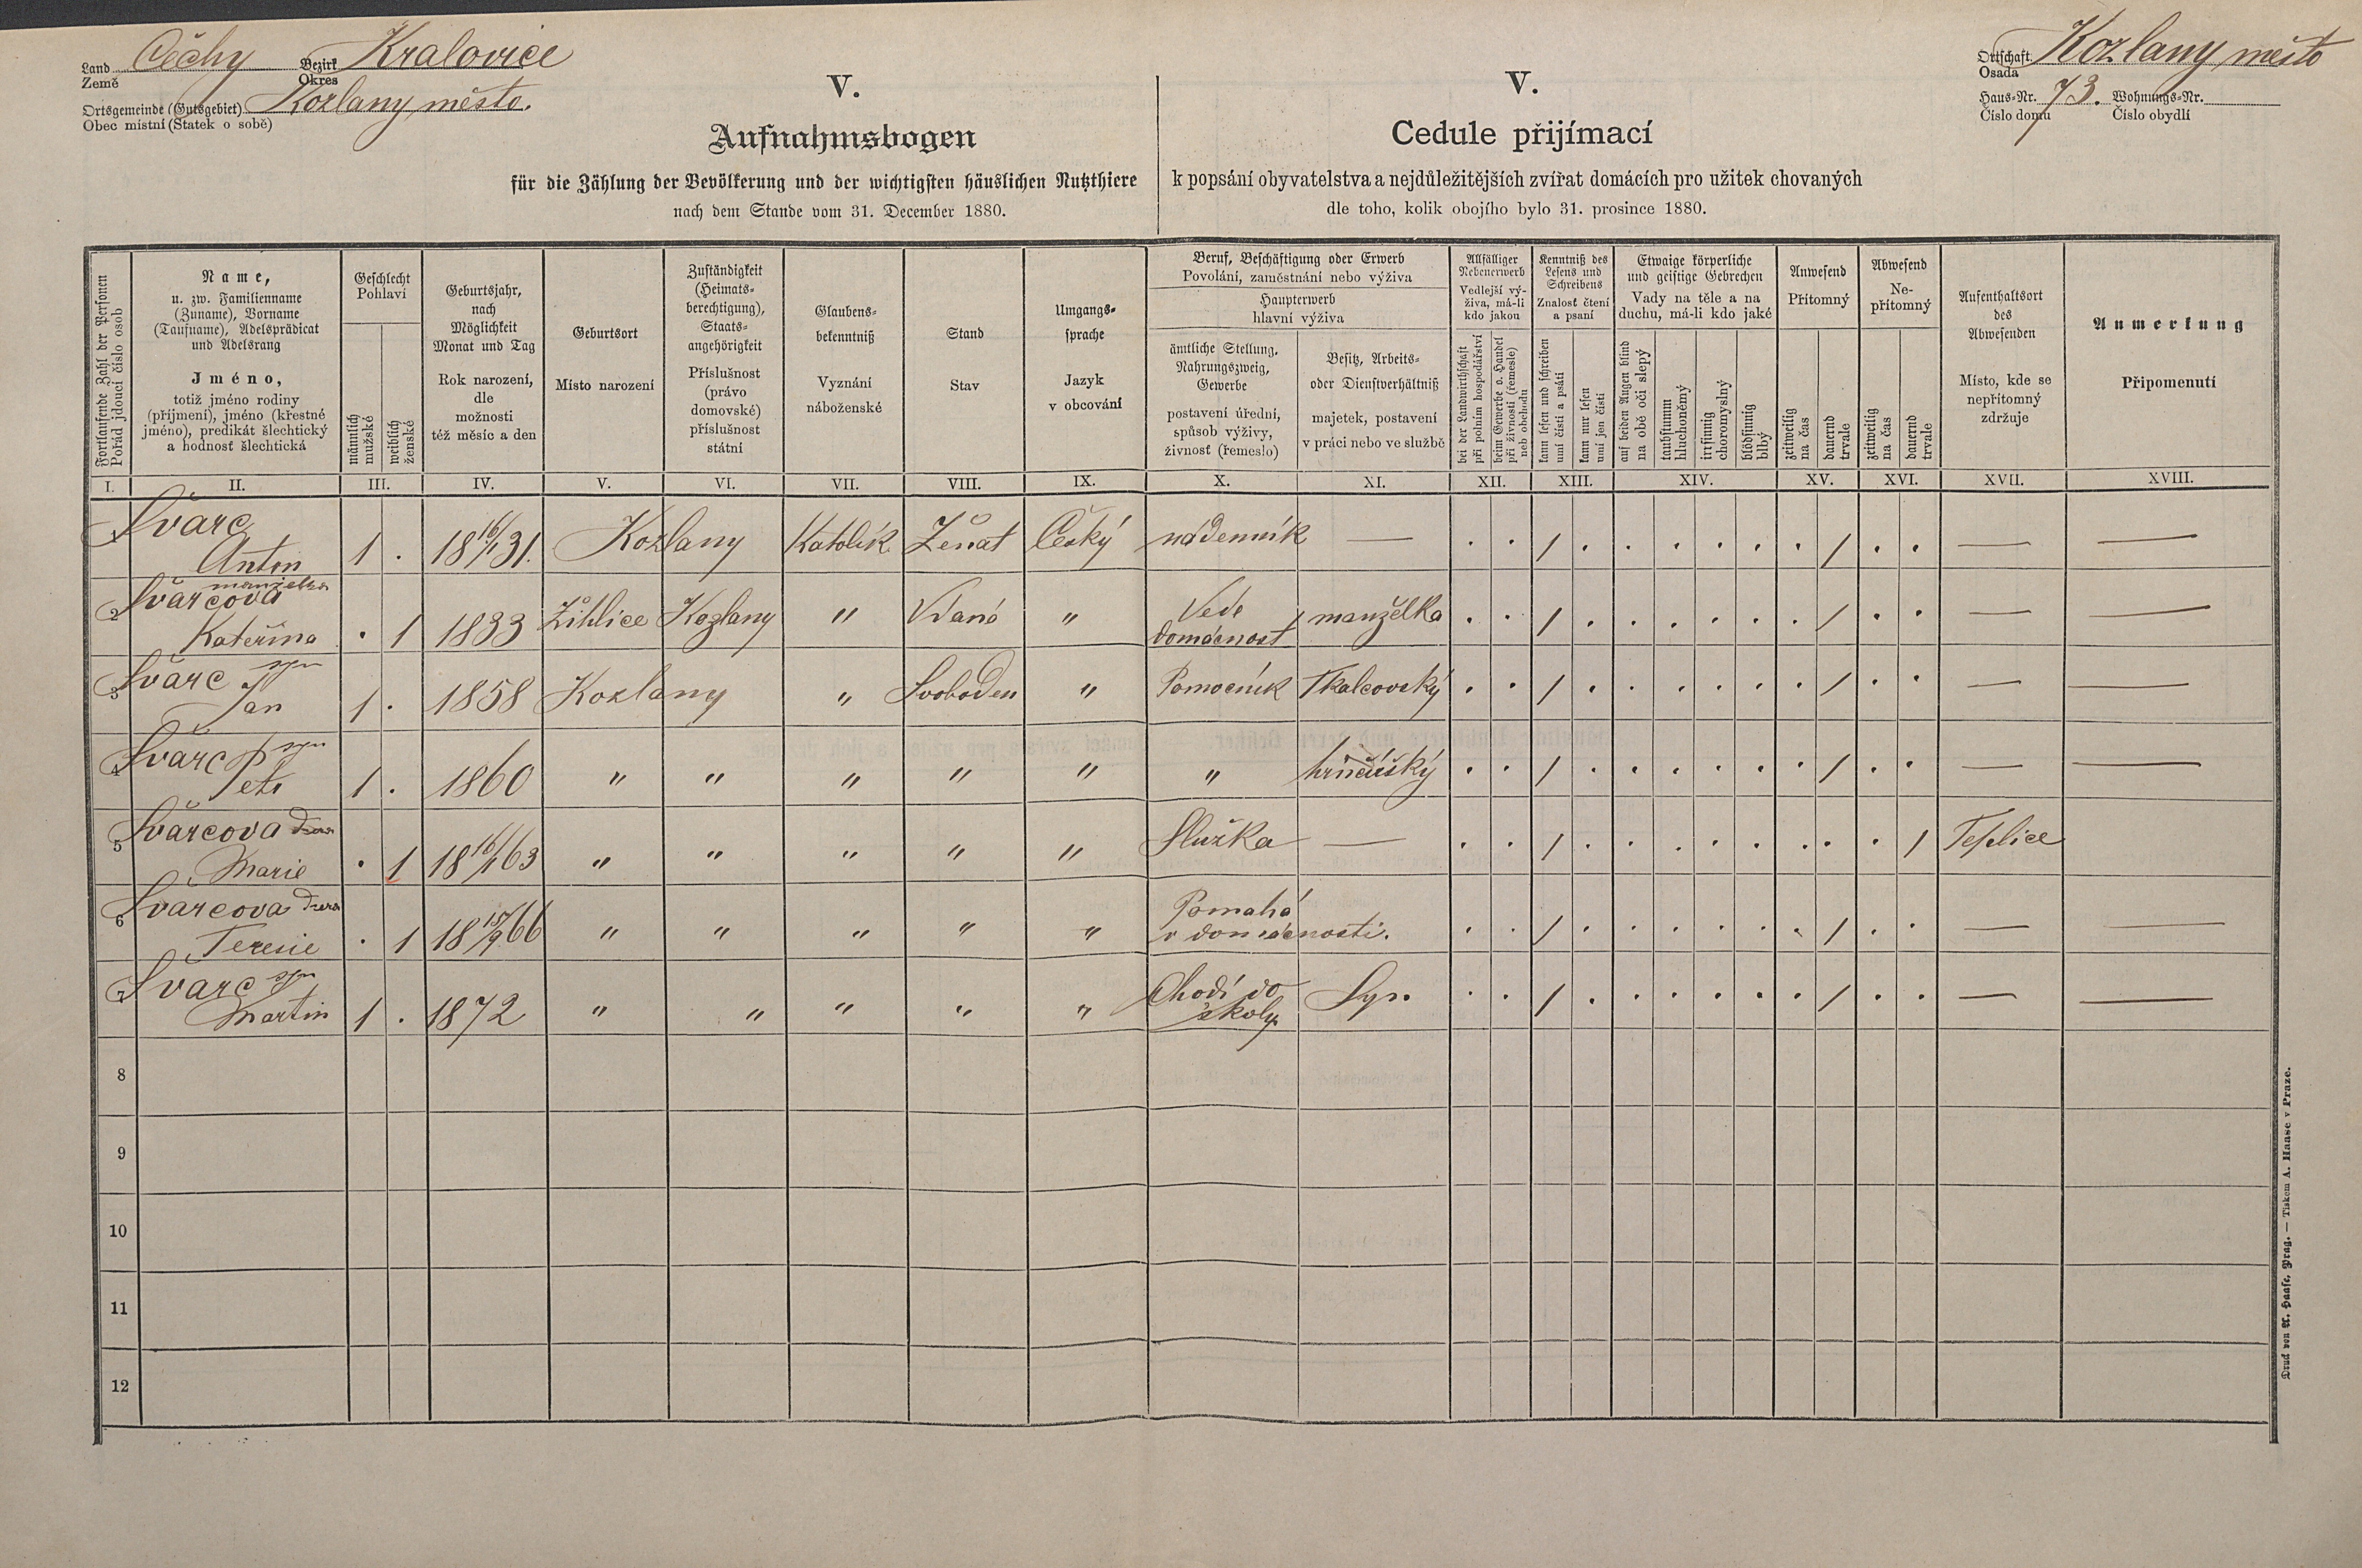 Land Čechy Bezirk Kralovice
Země Okres
Ortsgemeinde (Gutsgebiet) Kozlany město.
Obec místní (Statek o sobě)
V.
Aufnahmsbogen
für die Zählung der Bevölkerung und der wichtigsten häuslichen Nutzthiere
nach dem Stande vom 31. December 1880.
V.
Cedule přijímací
k popsání obyvatelstva a nejdůležitějších zvířat domácích pro užitek chovaných
dle toho, kolik obojího bylo 31. prosince 1880.
Ortschaft Kozlany město
Osada
Haus-Nr. 73. Wohnungs-Nr.
Číslo domu Číslo obydlí
Fortlaufende Zahl der Personen
Pořád jdoucí číslo osob
Name,
u. zw. Familienname
(Zuname), Vorname
(Taufname), Adelsprädicat
und Adelsrang
Jméno,
totiž jméno rodiny
(příjmení), jméno (křestné
jméno), predikát šlechtický
a hodnosť šlechtická
Geschlecht
Pohlaví
männlich
mužské
weiblich
ženské
Geburtsjahr,
nach
Möglichkeit
Monat und Tag
Rok narození,
dle
možnosti
též měsíc a den
Geburtsort
Místo narození
Zuständigkeit
(Heimats-
berechtigung),
Staats-
angehörigkeit
Příslušnost
(právo
domovské)
příslušnost
státní
Glaubens-
bekenntniß
Vyznání
náboženské
Stand
Stav
Umgangs-
sprache
Jazyk
v obcování
Beruf, Beschäftigung oder Erwerb
Povolání, zaměstnání nebo výživa
Haupterwerb
hlavní výživa
ämtliche Stellung,
Nahrungszweig,
Gewerbe
postavení úřední,
spůsob výživy,
živnosť (řemeslo)
Besitz, Arbeits-
oder Dienstverhältniß
majetek, postavení
v práci nebo ve službě
Allfälliger
Nebenerwerb
Vedlejší vý-
živa, má-li
kdo jakou
bei der Landwirthschaft
při polním hospodářství
beim Gewerbe o. Handel
při živnosti (řemesle)
neb obchodu
Kenntniß des
Lesens und
Schreibens
Znalosť čtení
a psaní
kann lesen und schreiben
umí čísti a psáti
kann nur lesen
umí jen čísti
Etwaige körperliche
und geistige Gebrechen
Vady na těle a na
duchu, má-li kdo jaké
auf beiden Augen blind
na obě oči slepý
taubstumm
hluchoněmý
irrsinnig
choromyslný
blödsinnig
blbý
Anwesend
Přítomný
zeitweilig
na čas
dauernd
trvale
Abwesend
Ne-
přítomný
zeitweilig
na čas
dauernd
trvale
Aufenthaltsort
des
Abwesenden
Místo, kde se
nepřítomný
zdržuje
Anmerkung
Připomenutí
I. II. III. IV. V. VI. VII. VIII. IX. X. XI. XII. XIII. XIV. XV. XVI. XVII. XVIII.
1 Švarc
Anton 1 . 18 16/1 31. Kozlany Katolík Ženat Český nádenník — . . / . . . . . . / . . — —
manželka
2 Švarcova
Kateřina . 1 1833 Žihlice Kozlany " Vdaná " Vede
domácnost manželka . . / . . . . . . / . . — —
3 Švarc syn
Jan 1 . 1858 Kozlany " Svoboden " Pomocník Tkalcovský . . / . . . . . . / . . — —
4 Švarc syn
Petr 1 . 1860 " " " " " " hrnčířský . . / . . . . . . / . . — —
5 Švarcova dcera
Marie . 1 18 16/1 63 " " " " " Služka — . . / . . . . . . . . / Teplice
6 Švarcova dcera
Teresie . 1 18 15/9 66 " " " " " Pomahá
v domácnosti. . . / . . . . . . / . . — —
7 Švarc syn
Martin 1 . 1872 " " " " " Chodí do
školy Syn . . / . . . . . . / . . — —
8
9
10
11
12
Druck von A. Haase, Prag. — Tiskem A. Haase v Praze.